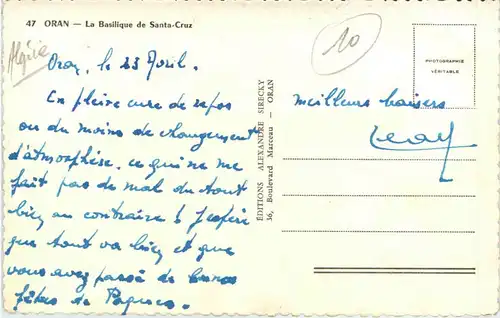 47 ORAN — La Basilique de Santa-Cruz
Algérie
10
PHOTOGRAPHIE
VÉRITABLE
Oran, le 23 Avril.
En pleine cure de repos
ou du moins de changement
d'atmosphère, ce qui ne me
fait pas de mal du tout
bien au contraire ! J'espère
que tout va bien et que
vous avez passé de bonnes
fêtes de Pâques.
meilleurs baisers
ÉDITIONS ALEXANDRE SIRECKY
36, Boulevard Marceau — ORAN